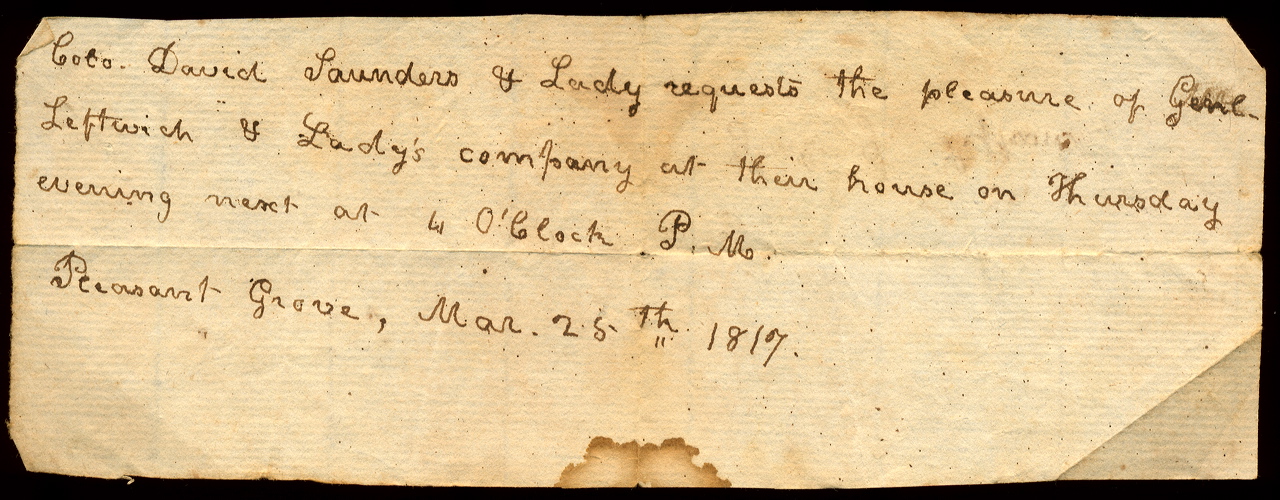 Colo. David Saunders & Lady requests the pleasure of Genl.
Leftwich & Lady's company at their house on Thursday
evening next at 4 O'Clock P. M.
Pleasant Grove, Mar. 25th 1817.